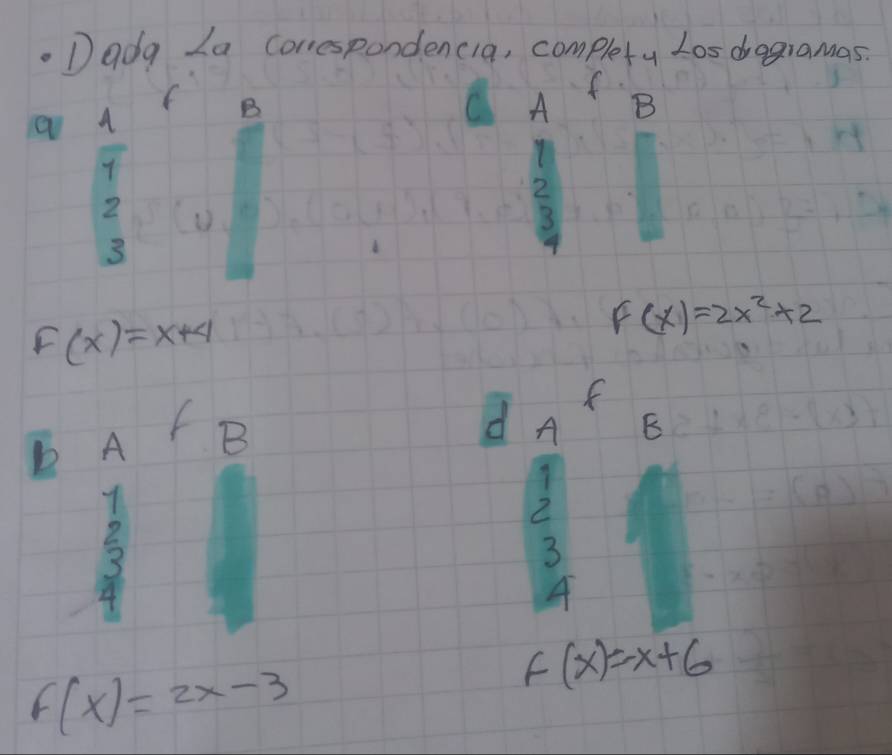 • Dada La correspondencia, completa Los diagramas.
a A f B
1
2
3
F(x)=x+4
c A f B
1
2
3
4
F(x)=2x²+2
b A f B
1
2
3
4
F(x)=2x-3
d A f B
1
2
3
4
F(x)=x+6